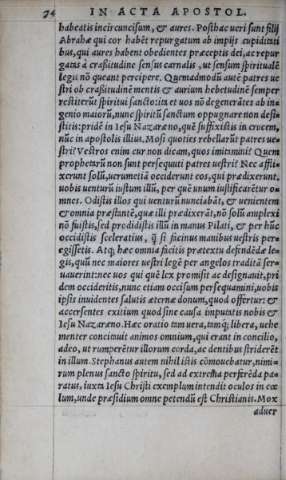 74 IN ACTA APOSTOL.
habeatis incircuncisum, & aures. Posthac veri sunt filij
Abrahæ qui cor habẽt repurgatum ab impijs cupiditati
bus, qui aures habent obedientes præceptis dei, ac repur
gatas à crassitudine sensus carnalis, ut sensum spiritualẽ
legis nõ queant percipere. Quemadmodũ autẽ patres ue
stri ob crassitudinẽ mentis & aurium hebetudinẽ semper
restiterũt spiritui sancto: ita et uos nõ degenerãtes ab in-
genio maiorũ, nunc spiritũ sanctum oppugnare non desi-
stitis: pridẽ in Iesu Nazareno, quẽ suffixistis in crucem,
nũc in apostolis illius. Mosi quoties rebellarũt patres ue-
stri? Vestros enim cur non dicam, quos imitamini? Quem
prophetarũ non sunt persequuti patres uestri? Nec afflî-
xerunt solũ, uerumetiã occiderunt eos, qui prædixerunt,
uobis uenturũ iustum illũ, per quẽ unum iustificarẽtur o-
mnes. Odistis illos qui uenturũ nunciabãt, & uenientem
& omnia præstantẽ, quæ illi prædixerãt, nõ solũ amplexi
nõ fuistis, sed prodidistis illũ in manus Pilati, & per hũc
occidistis sceleratius, q̃ si facinus manibus uestris per-
egissetis. Atq; hæc omnia facitis prætextu defendẽdæ le-
gis, quũ nec maiores uestri legẽ per angelos traditã ser-
uauerint: nec uos qui quẽ lex promisit ac designauit, pri
dem occideritis, nunc etiam occisum persequamini, uobis
ipsis inuidentes salutis æternæ donum, quod offertur: &
accersentes exitium quod sine causa impunitis nobis &
Iesu Nazareno. Hæc oratio tam uera, tamq; libera, uehe
menter concinuit animos omnium, qui erant in concilio,
adeo, ut rumperẽtur illorum corda, ac dentibus striderẽt
in illum. Stephanus autem nihil istis cõmouebatur, nimi-
rum plenus sancto spiritu, sed ad extrema perferẽda pa-
ratus, iuxta Iesu Christi exemplum intendit oculos in cœ
lum, unde præsidium omne petendũ est Christianis. Mox
aduer